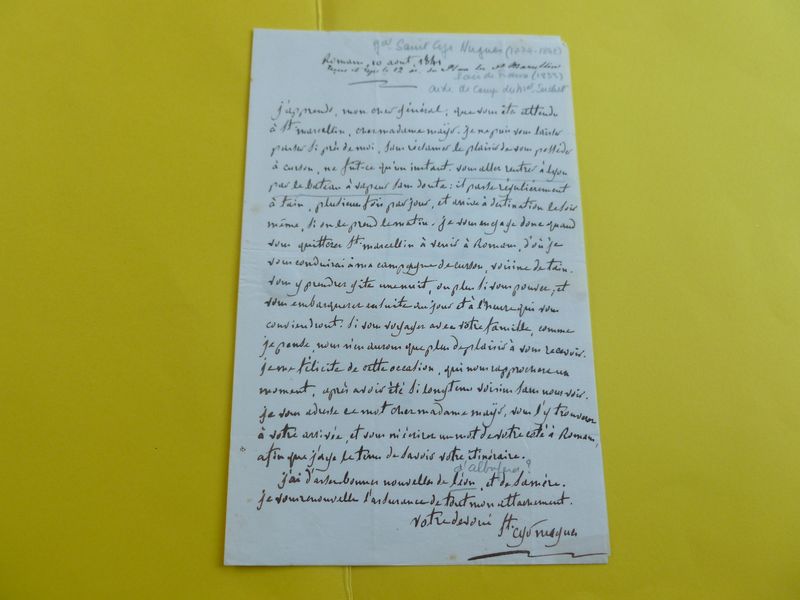 gal Saint Cyr Nugues (1774-1842)
Romans, 10 août, 1841
pair de France (1832)
aide de camp du Mal Suchet
j'apprends, mon cher général, que vous êtes attendu
à St marcellin, chez madame mays. je ne puis vous laisser
passer si près de moi, sans réclamer le plaisir de vous posséder
à curson, ne fut-ce qu'un instant. vous allez rentrer à Lyon
par le bateau à vapeur sans doute: il passe régulièrement
à tain, plusieurs fois par jour, et arrive à destination le soir
même, si on le prend le matin. je vous engage donc quand
vous quitterez St. marcellin à venir à Romans, d'où je
vous conduirai à ma campagne de curson, voisine de tain.
vous y prendrez gîte une nuit, ou plus si vous pouvez, et
vous embarquerez ensuite au jour et à l'heure qui vous
conviendront. Si vous voyagez avec votre famille, comme
je pense, nous n'en aurons que plus de plaisir à vous recevoir.
je me félicite de cette occasion, qui nous rapprochera un
moment, après avoir été si longtems voisins sans nous voir.
je vous adresse ce mot chez madame mays, vous l'y trouverez
à votre arrivée, et vous m'écrirez un mot de votre côté à Romans,
afin que j'aye le tems de savoir votre itinéraire.
d'Albufera?
j'ai d'assez bonnes nouvelles de léon, et de sa mère.
je vous renouvelle l'assurance de tout mon attachement.
votre dévoué St. cyr nugues